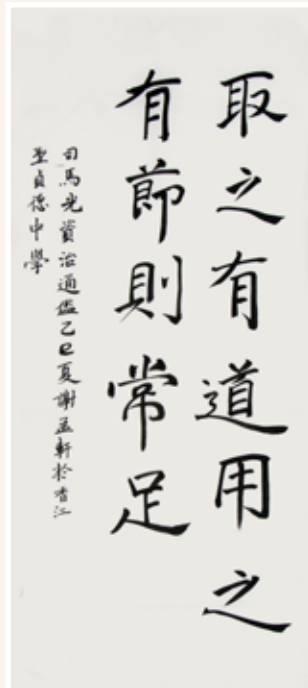 取之有道用之
有節則常足
司馬光資治通鑑乙巳夏謝孟軒於香江
聖貞德中學